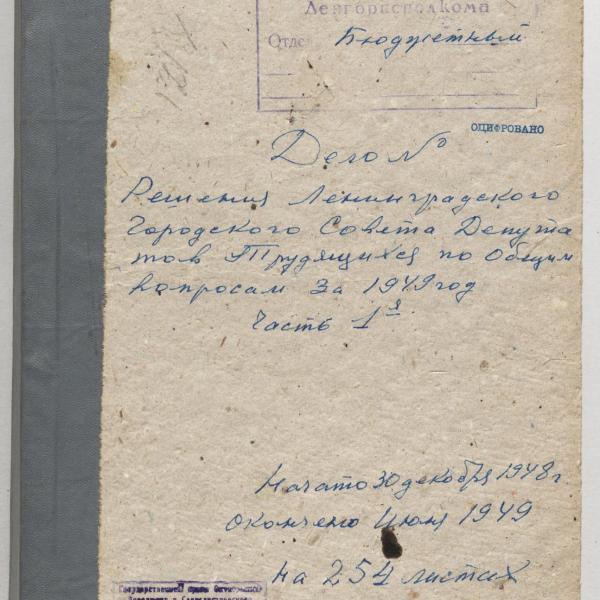 Ленгорисполкома
Отде Бюджетный
ОЦИФРОВАНО
Дело №
Решения Ленинградского
Городского Совета Депута
тов Трудящихся по Общим
вопросам за 1949 год
Часть 1я
Начато 30 декабря 1948 г.
окончено Июня 1949
на 254 листах
Государственный архив Октябрьской